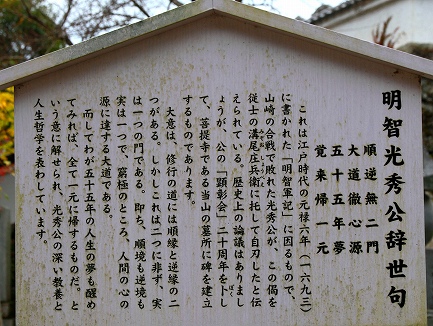 明智光秀公辞世句
順逆無二門
大道徹心源
五十五年夢
覚来帰一元
これは江戸時代の元禄六年(一六九三)
に書かれた「明智軍記」に因るもので、
山崎の合戦で敗れた光秀公が、この偈を
従士の溝尾庄兵衛に托して自刃したと伝
えられている。歴史上の論議はありまし
ょうが、公の「顕彰会」二十周年を卜し
て、菩提寺である当山の墓所に碑を建立
するものであります。
大意は、修行の道には順縁と逆縁の二
つがある。しかしこれは二つに非ず、実
は一つの門である。即ち、順境も逆境も
実は一つで、窮極のところ、人間の心の
源に達する大道である。
而してわが五十五年の人生の夢も醒め
てみれば、全て一元に帰するものだ。と
いう意に解せられ、光秀公の深い教養と
人生哲学を表わしています。